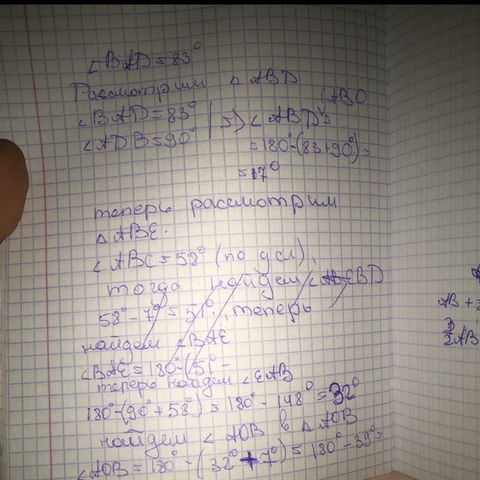 ∠BAD=83°
Рассмотрим △ABD
∠BAD=83°
∠ADB=90° | => ∠ABD =
(ABO
=180°-(83+90°)=
=17°
теперь рассмотрим
△ABE.
∠ABC=58° (по усл),
тогда найдем ∠EBD
58°-7°=51°, теперь
найдем ∠BAE
∠BAE=180°-(51°-
теперь найдем ∠EAB
180°-(90°+58°)=180°-148°=32°
найдем ∠AOB в △AOB
∠AOB=180°-(32°+7°)=180°-39°=
AB+
AB